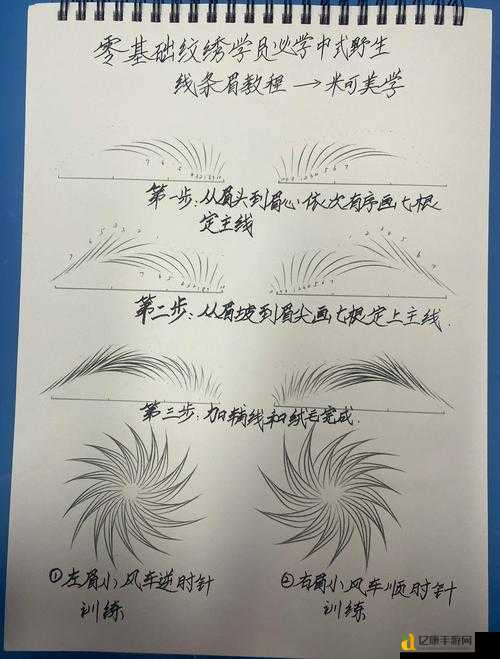 零基础纹绣学员必学中式野生
线条眉教程→米可美学
7 6 5 4 3 2 1
1 2 3 4 5 6 7
第一步:从眉头到眉心依次有序画七根
定主线
第二步:从眉坡到眉尖画七根定上主线.
第三步:加辅线和绒毛完成.
①左眉小风车逆时针
训练
②右眉小风车顺时针
训练
亿康丰游网